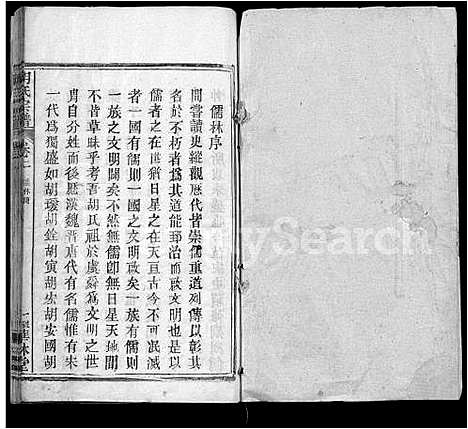 儒林序
間嘗讀史縱觀歷代皆崇儒重道列傳以彰其
名於不朽者為其道能郅治而歐功業也是以
儒者之在世猶日星之在天亘古今不可泯滅
者也一國有儒則一國之文明啟矣一族有儒則
一族之文明闢矣不然無儒卽無日星天地間
不皆草昧乎考吾胡氏祖於虞舜為文明之世
冑自周而後歷漢魏晋唐代有名儒惟有朱
一代為獨盛如胡瑗胡銓胡寅胡宏胡安國胡
胡氏宗譜
卷之一
MySearch